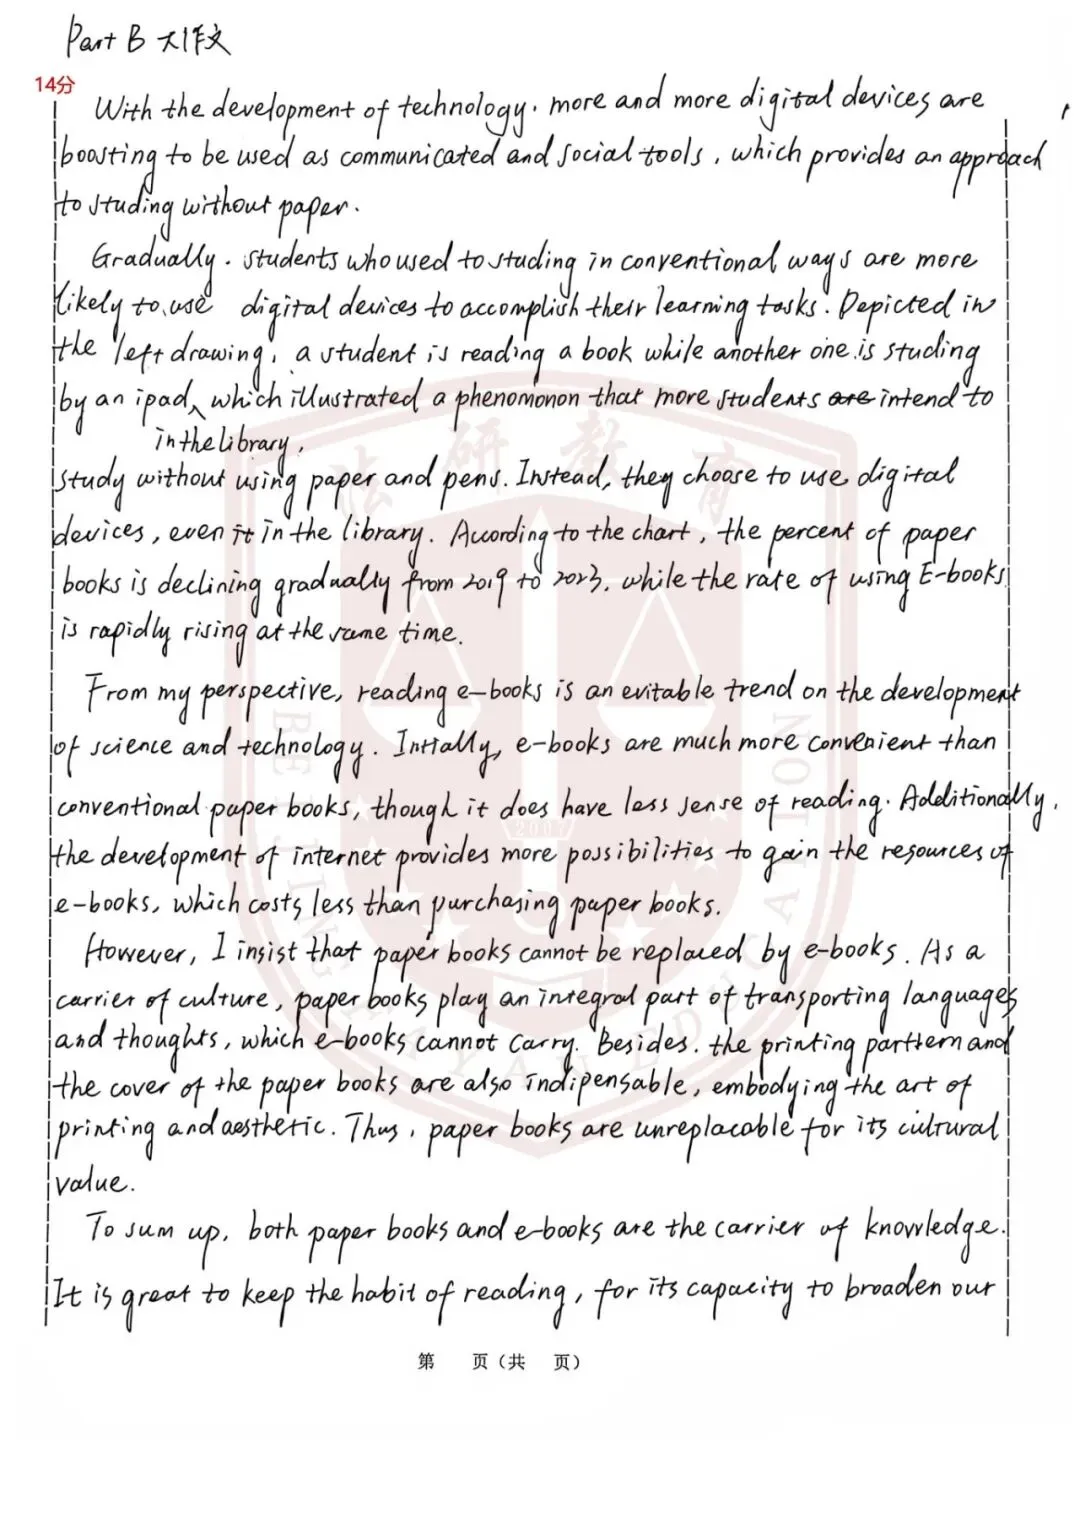 Part B 大作文
14分
With the development of technology. more and more digital devices are
boosting to be used as communicated and social tools, which provides an approach
to studing without paper.
Gradually. students who used to studing in conventional ways are more
likely to use digital devices to accomplish their learning tasks. Depicted in
the left drawing, a student is reading a book while another one is studing
by an ipad, which illustrated a phenomonon that more students are intend to
in the library,
study without using paper and pens. Instead, they choose to use digital
devices, even it in the library. According to the chart, the percent of paper
books is declining gradually from 2019 to 2023, while the rate of using E-books
is rapidly rising at the same time.
From my perspective, reading e-books is an evitable trend on the development
of science and technology. Intially, e-books are much more convenient than
conventional paper books, though it does have less sense of reading. Additionally,
the development of internet provides more possibilities to gain the resources of
e-books, which costs less than purchasing paper books.
However, I insist that paper books cannot be replaced by e-books. As a
carrier of culture, paper books play an integral part of transporting languages
and thoughts, which e-books cannot carry. Besides. the printing parttern and
the cover of the paper books are also indipensable, embodying the art of
printing and aesthetic. Thus, paper books are unreplacable for its cultural
value.
To sum up, both paper books and e-books are the carrier of knowledge.
It is great to keep the habit of reading, for its capacity to broaden our
第 页(共 页)
法研教育
BEIJING FAYAN EDUCATION
2007